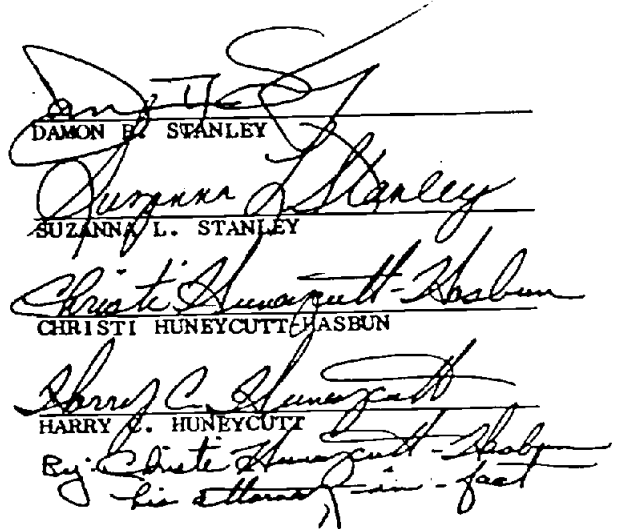 DAMON E. STANLEY
Suzanna L Stanley
SUZANNA L. STANLEY
Christi Huneycutt-Hasbun
CHRISTI HUNEYCUTT-HASBUN
Harry C. Huneycutt
HARRY C. HUNEYCUTT
By: Christi Huneycutt-Hasbun
his attorney-in-fact